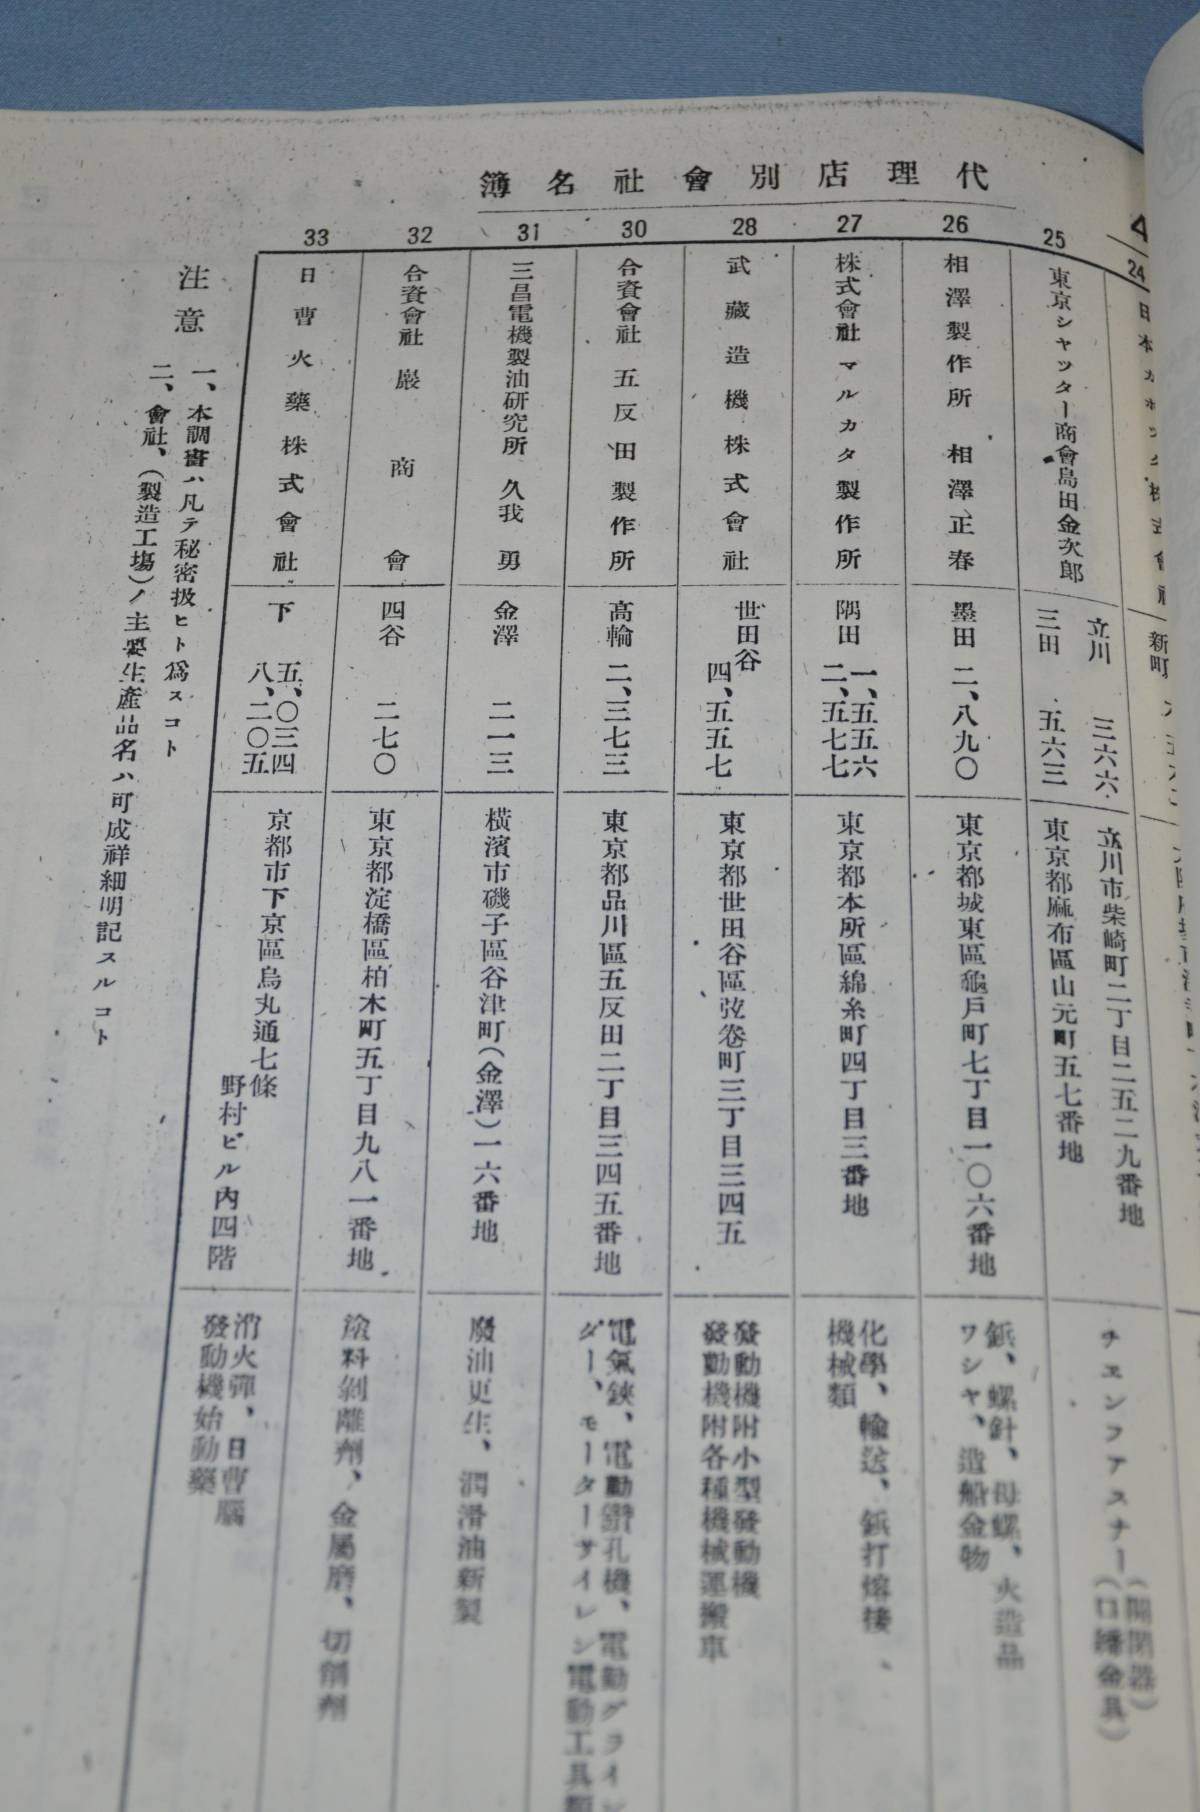 代理店別會社名簿
24
25
東京シャッター商會島田金次郎
立川 三六六
三田 五六三
立川市柴崎町二丁目二五二九番地
東京都麻布區山元町五七番地
チエンファスナー(開閉器)
26
相澤製作所 相澤正春
墨田 二、八九〇
東京都城東區龜戸町七丁目一〇六番地
鋲、螺針、母螺、火造品
ワシヤ、造船金物
27
株式會社マルカタ製作所
隅田 一、五五六
二、五七七
東京都本所區綿糸町四丁目三番地
化學、輸送、鋲打熔接、
機械類
28
武藏造機株式會社
世田谷 四、五五七
東京都世田谷區弦卷町三丁目三四五
發動機附小型發動機
發動機附各種機械運搬車
30
合資會社五反田製作所
高輪 二、三七三
東京都品川區五反田二丁目三四五番地
電氣鋏、電動鑽孔機、電動グライン
ダー、モーターサイレン電動工具類
31
三昌電機製油研究所 久我勇
金澤 二一三
横濱市磯子區谷津町(金澤)一六番地
廢油更生、潤滑油新製
32
合資會社巖商會
四谷 二七〇
東京都淀橋區柏木町五丁目九八一番地
塗料剝離劑、金屬磨、切削劑
33
日曹火藥株式會社
下 五、〇三四
八、二〇五
京都市下京區烏丸通七條
野村ビル內四階
消火彈、日曹腦
發動機始動藥
注意
一、本調書ハ凡テ秘密扱ヒト爲スコト
二、會社、(製造工場)ノ主要生產品名ハ可成祥細明記スルコト